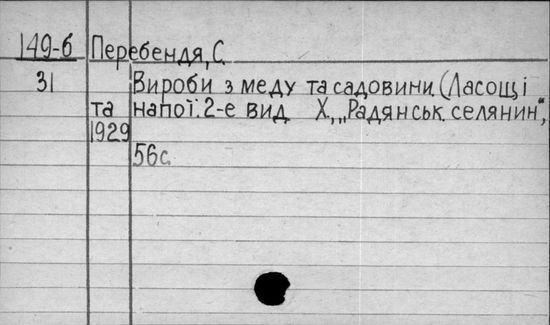 149-б Перебендя, С.
31 Вироби з меду та садовини. (Ласощі
та напої. 2-е вид Х., „Радянськ. селянин“,
1929
56с.